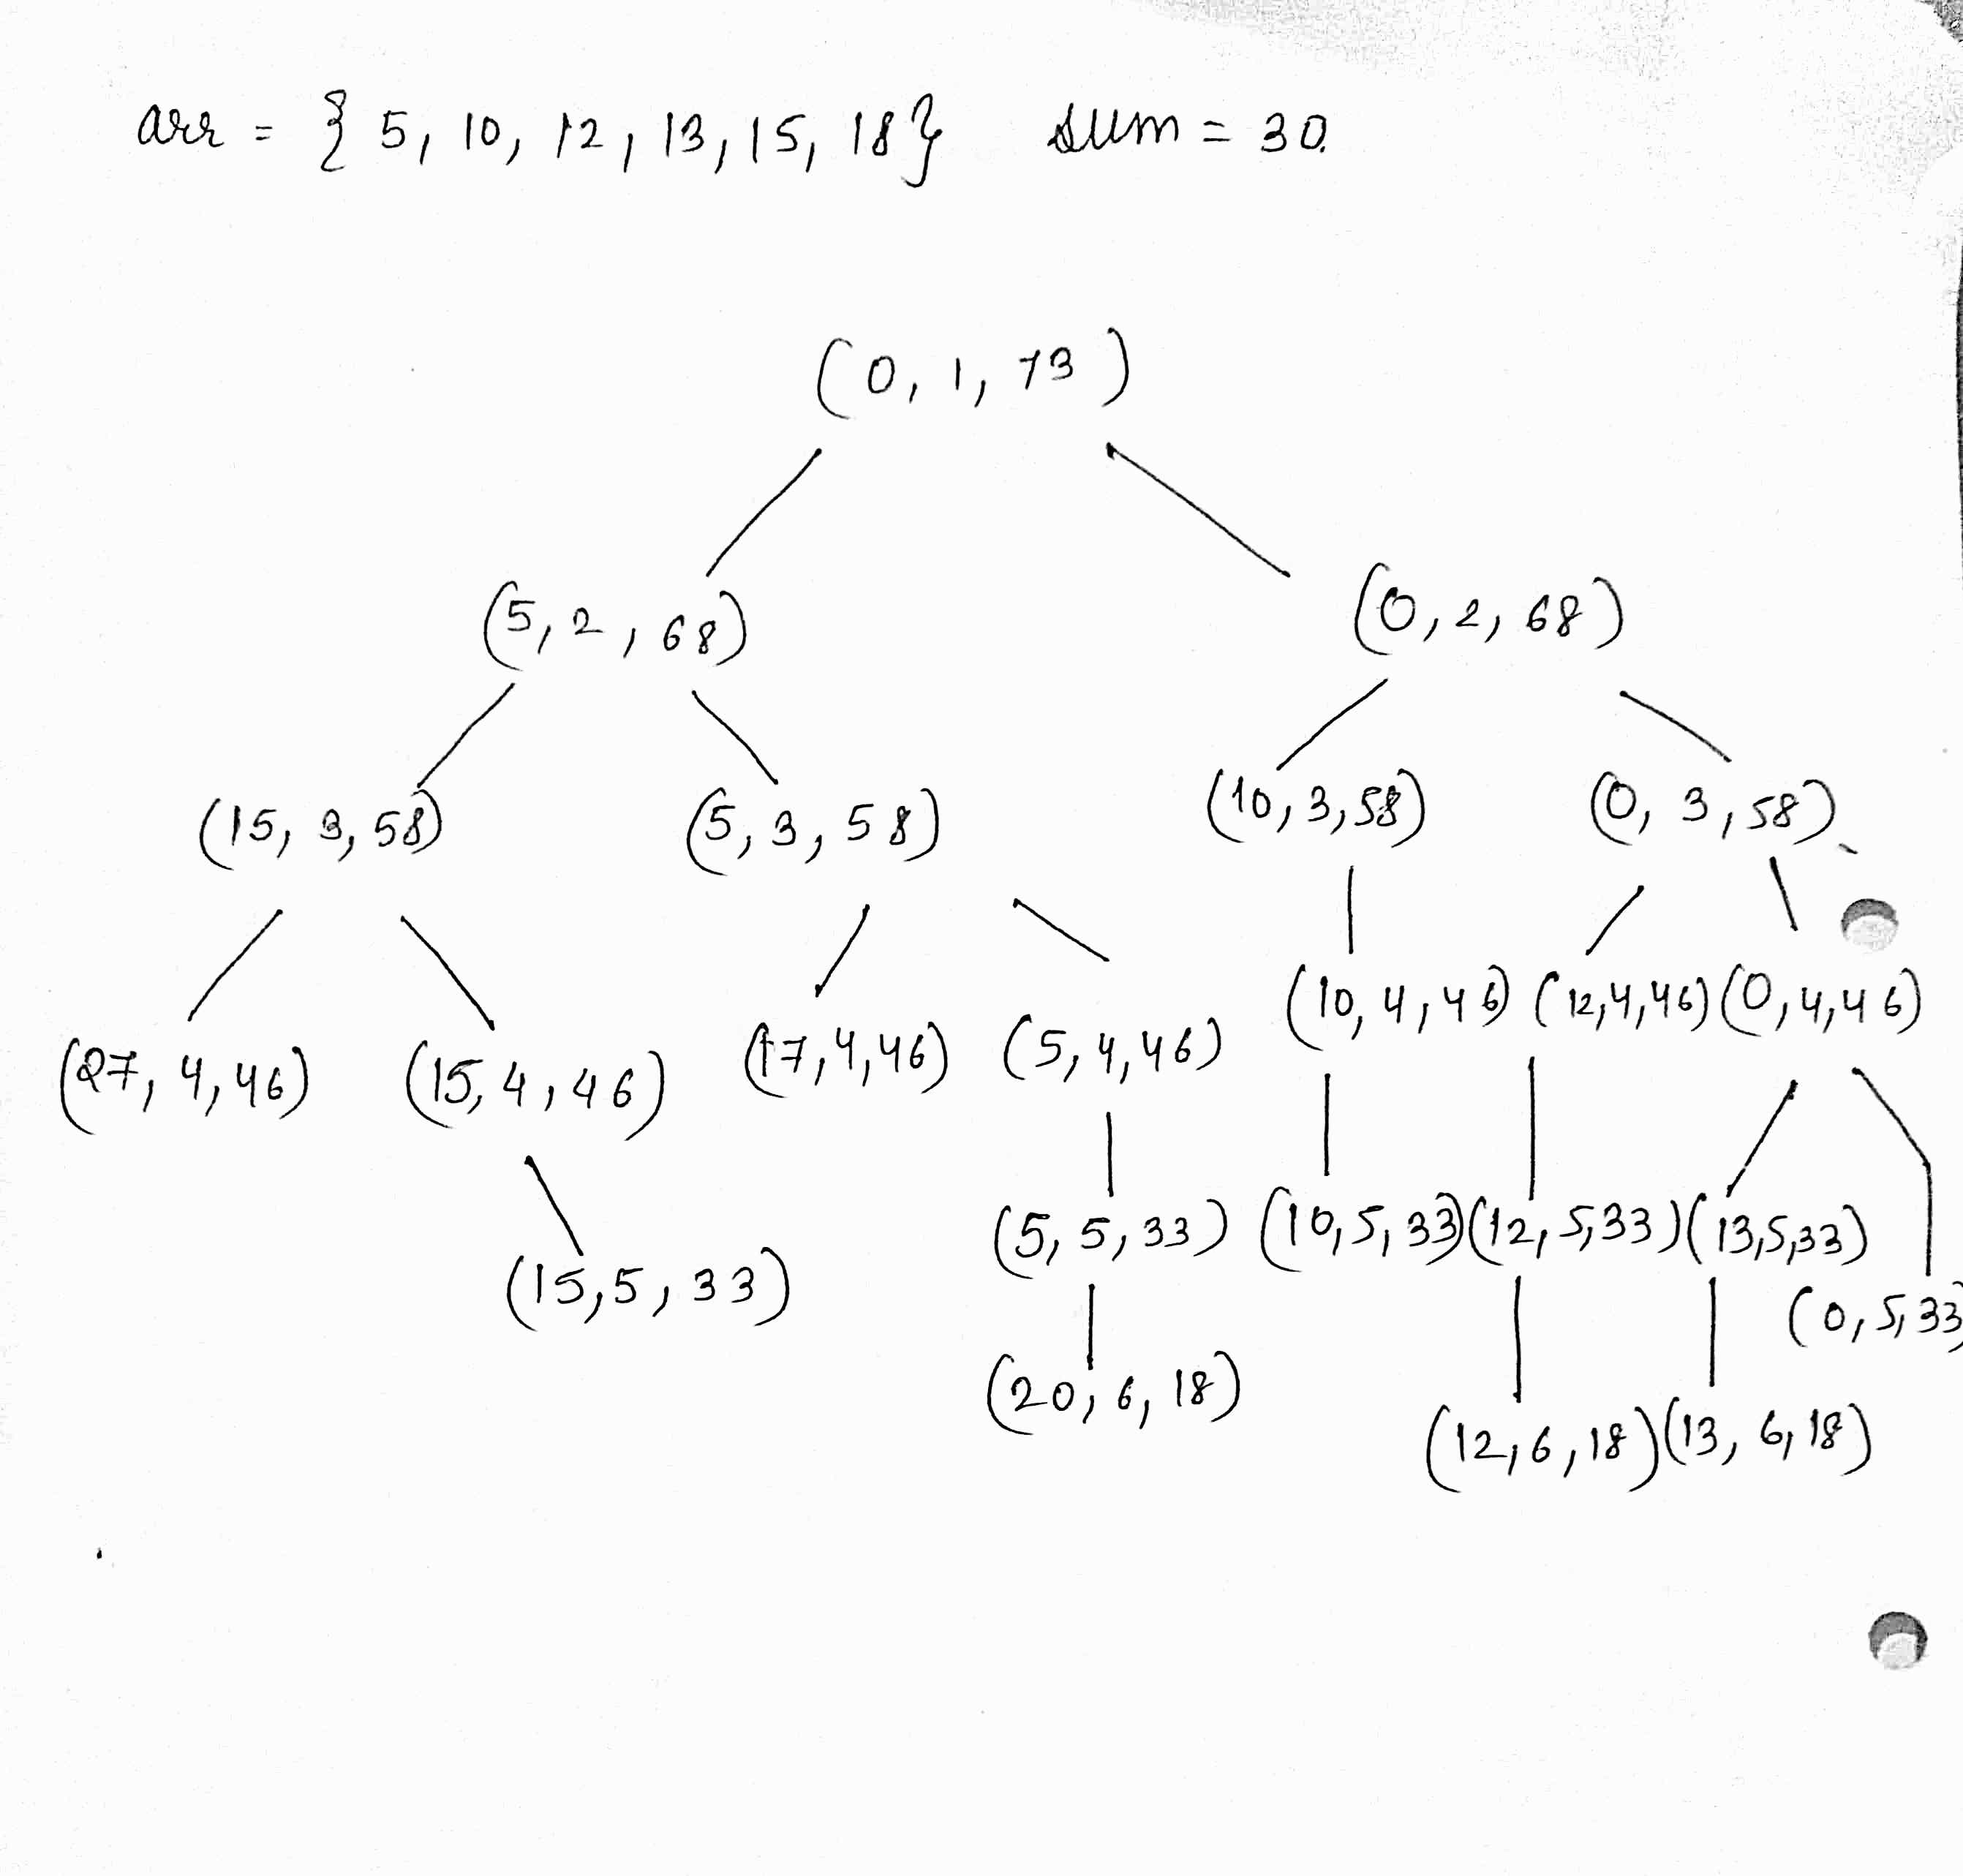 arr = { 5, 10, 12, 13, 15, 18} sum = 30.
(0, 1, 73)
(5, 2, 68) (0, 2, 68)
(15, 3, 58) (5, 3, 58) (10, 3, 58) (0, 3, 58)
(27, 4, 46) (15, 4, 46) (17, 4, 46) (5, 4, 46) (10, 4, 46) (12, 4, 46) (0, 4, 46)
(15, 5, 33) (5, 5, 33) (10, 5, 33) (12, 5, 33) (13, 5, 33) (0, 5, 33)
(20, 6, 18) (12, 6, 18) (13, 6, 18)